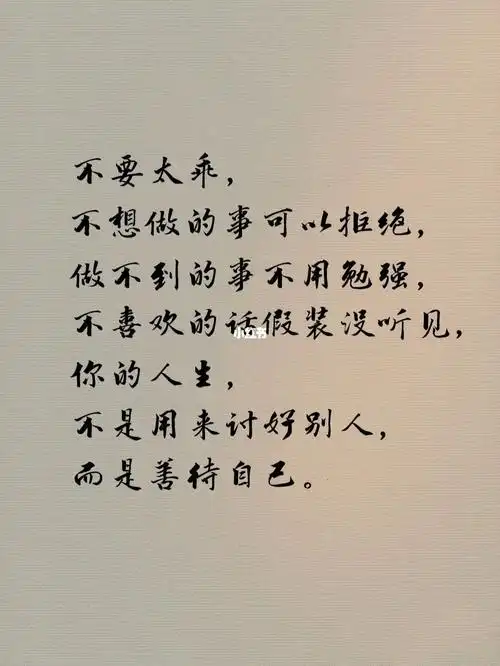 不要太乖，
不想做的事可以拒绝，
做不到的事不用勉强，
不喜欢的话假装没听见，
你的人生，
不是用来讨好别人，
而是善待自己。
小红书